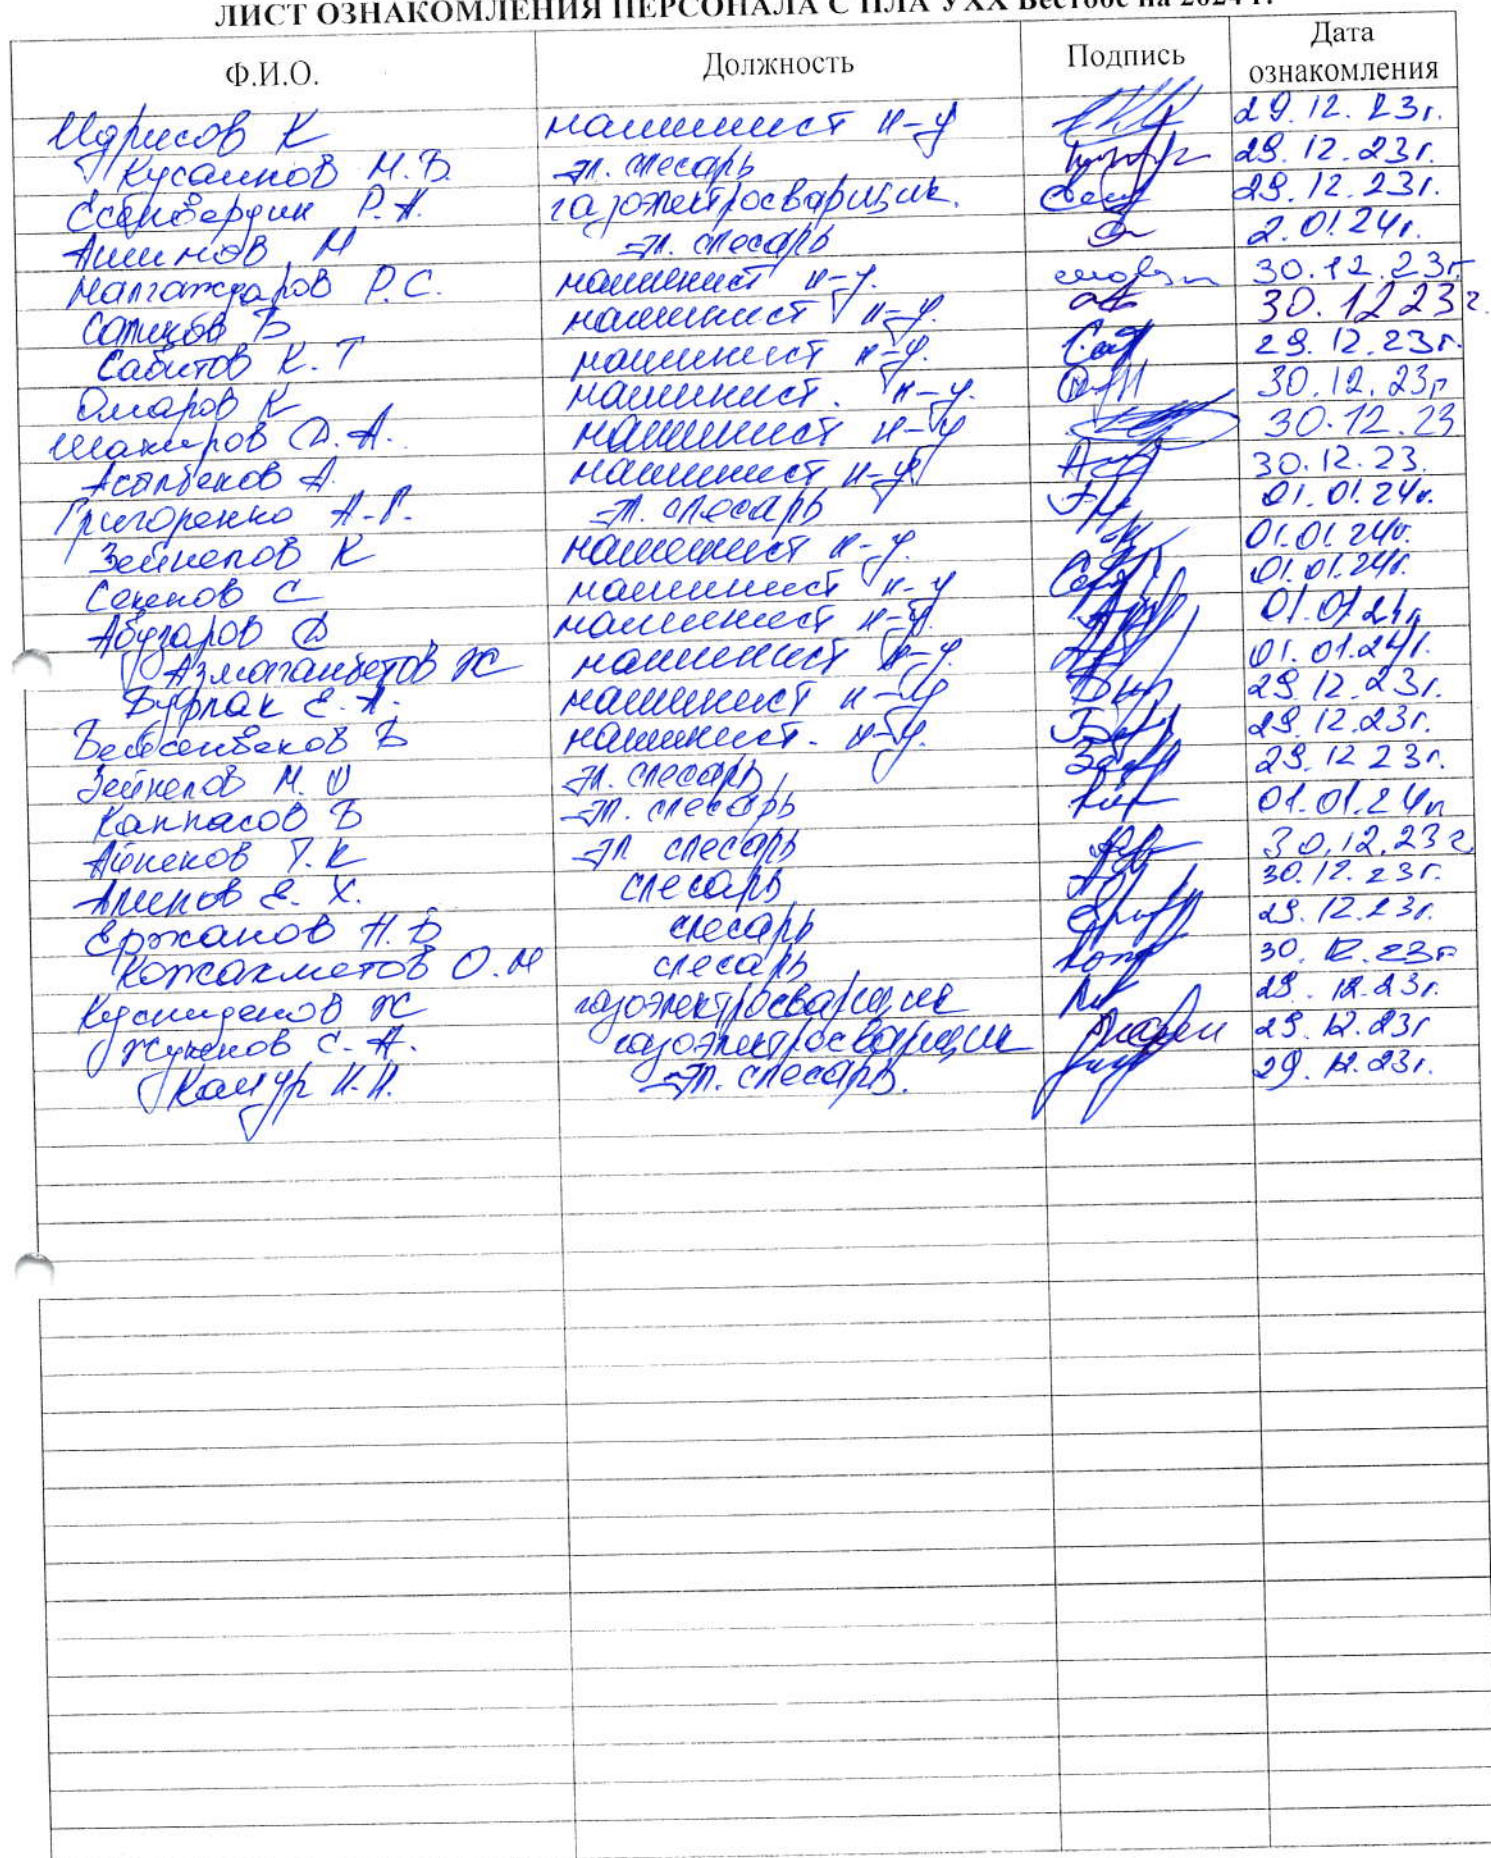 ЛИСТ ОЗНАКОМЛЕНИЯ ПЕРСОНАЛА С ПЛА УХХ Бестобе на 2024 г.
Ф.И.О. Должность Подпись Дата ознакомления
Идрисов К машинист н-у 29.12.23г.
Кусаинов М.Б. эл. слесарь 29.12.23г.
Есенбердин Р.А. газоэлектросварщик. 29.12.23г.
М эл. слесарь 2.01.24г.
Малгаждаров Р.С. машинист н-у. 30.12.23г
Б машинист н-у. 30.12 23г.
Сабитов К.Т машинист н-у. 29.12.23г.
Омаров К машинист. н-у. 30.12.23г
Шакиров Д.А. машинист н-у 30.12.23
Асылбеков А. машинист н-у 30.12.23.
Григоренко А.Г. эл. слесарь 01.01.24г.
Зейнелов К машинист н-у. 01.01.24г.
Секенов С машинист н-у 01.01.24г.
Абугаров Д машинист н-у. 01.01 24г
Азмаганбетов Ж машинист н-у. 01.01.24г.
Бурлак Е.А. машинист н-у 29.12.23г.
Б машинист. н-у. 29.12.23г.
Зейнелов М.О эл. слесарь 29.12 23г.
Каппасов Б эл. слесарь 01.01.24г
Айпенов Т.К эл слесарь 30.12.23г.
Алинов Е.Х. слесарь 30.12.23г.
Ержанов Н.Б слесарь 29.12.23г.
Кожахметов О.М слесарь 30.12.23г
Ж газоэлектросварщик 29.12.23г.
Жукенов С.А. газоэлектросварщик 29.12.23г
эл. слесарь. 29.12.23г.